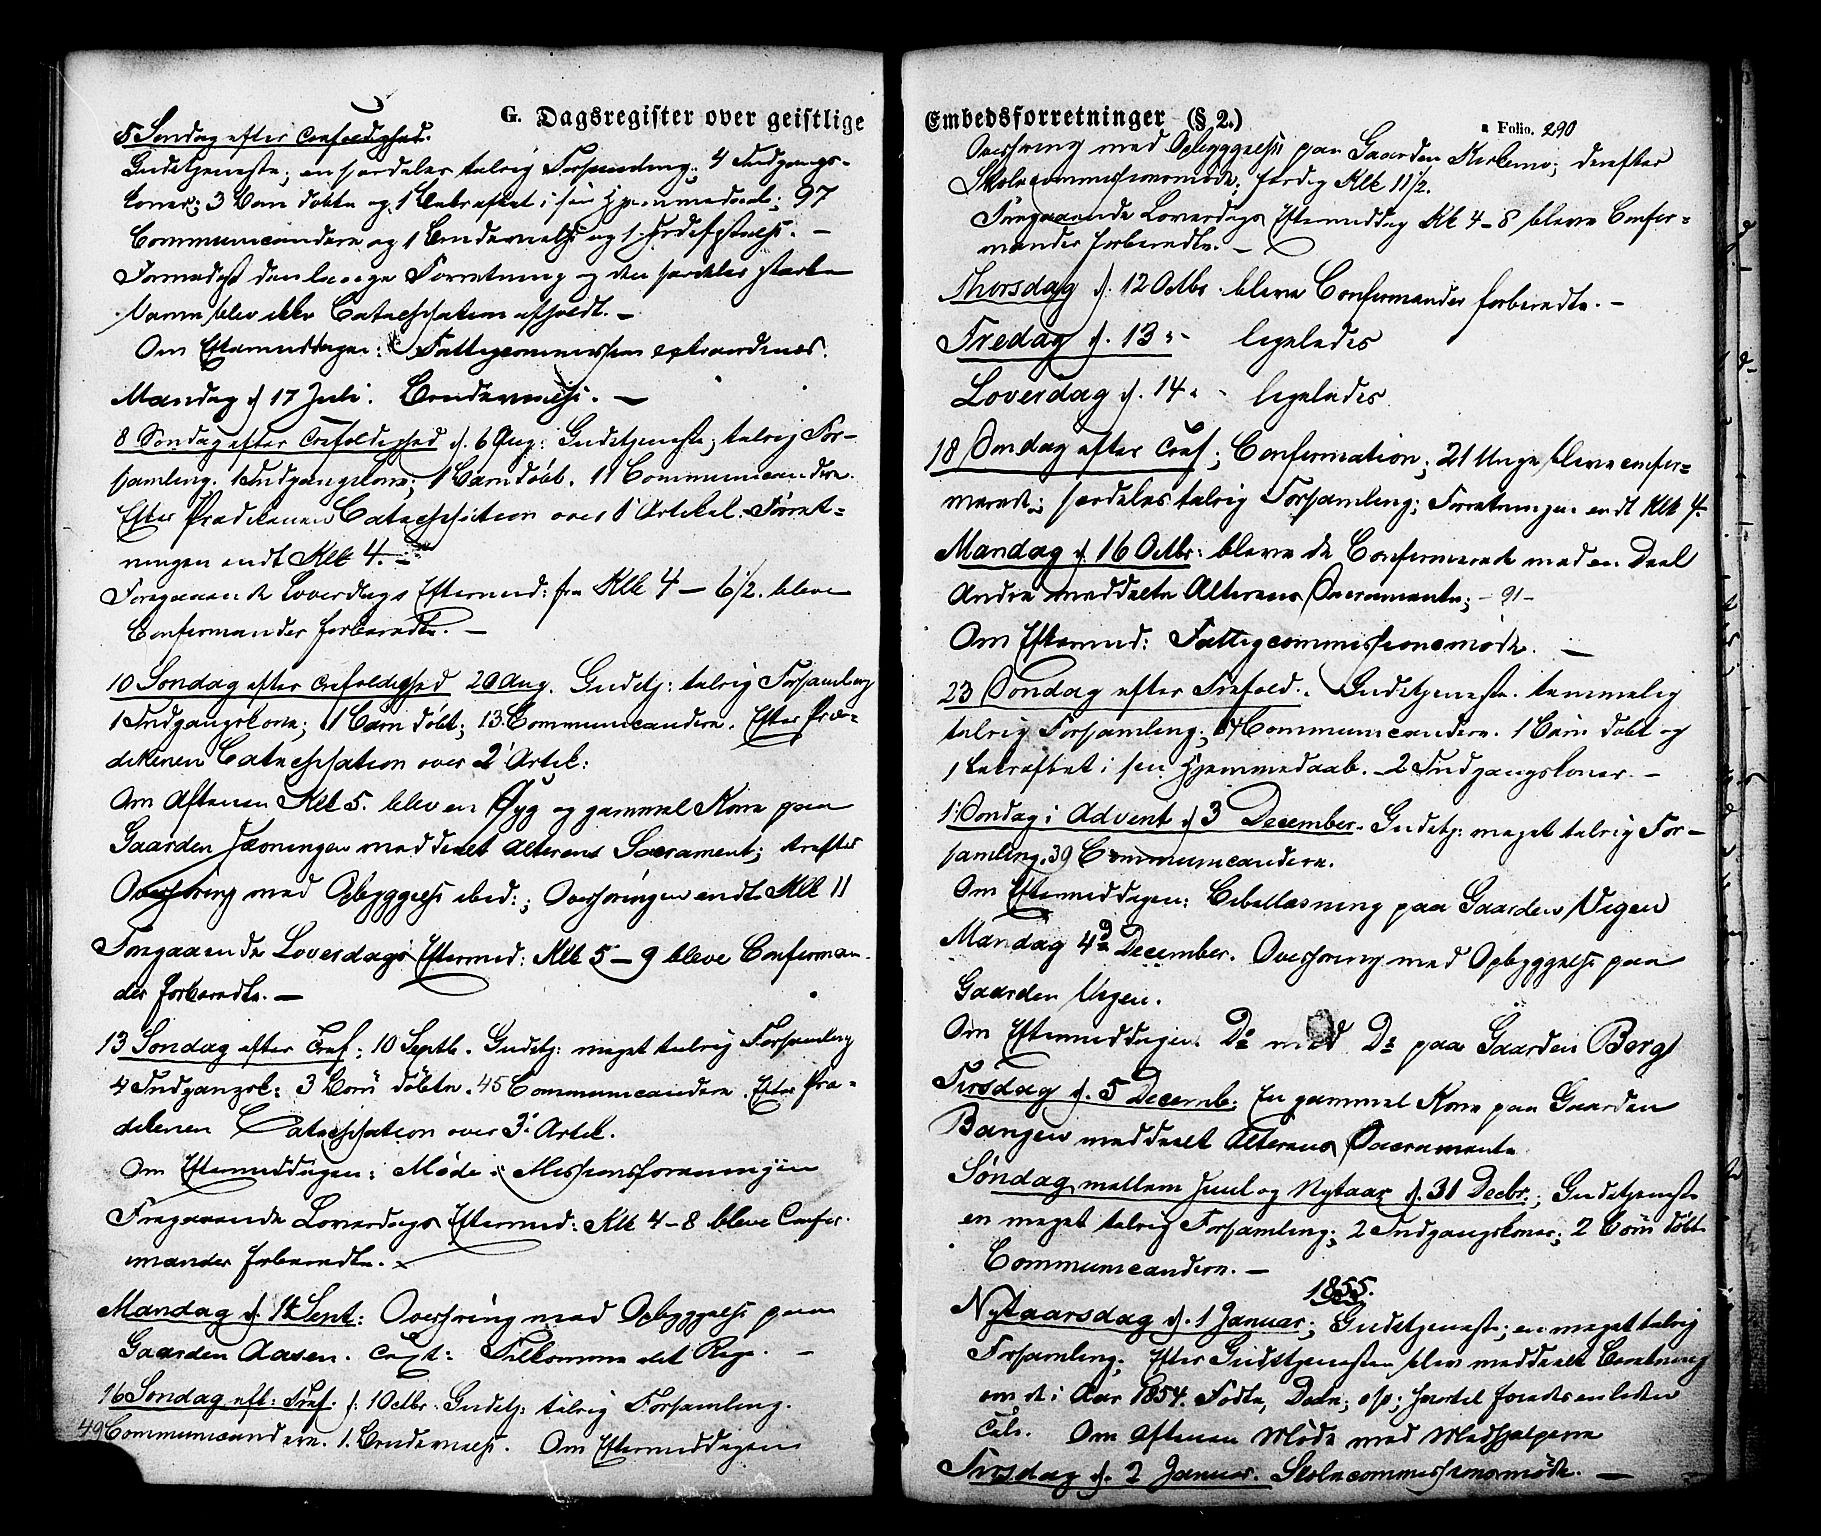 G. Dagsregister over geistlige
5 Søndag efter Trefoldighed.
Gudstjeneste; en særdeles talrig Forsamling; 4 Indgangs-
koner; 3 Børn døbte og 1 bekræftet i sin Hjemmedaab; 97
Communicandere og 1 Brudevielse og 1 Jordfæstelse. —
Formedelst den lange Forretning og den særdeles stærke
Varme blev ikke Catechisation afholdt. —
Om Eftermiddagen: Fattigcommission extraordinær.
Mandag d. 17 Juli. Brudevielse. —
8 Søndag efter Trefoldighed d. 6 Aug: Gudstjeneste; talrig For-
samling. 1 Indgangskone; 1 Barn døbt. 11 Communicandere.
Efter Prædikenen Catechisation over 1 Artikel. Forret-
ningen endt Klk 4. —
Foregaaende Løverdags Eftermid: fra Klk 4 — 6 1/2. bleve
Confirmander forberedte. —
10 Søndag efter Trefoldighed 20 Aug. Gudstj: talrig Forsamling
1 Indgangskone; 1 Barn døbt; 13 Communicandere. Efter Præ-
dikenen Catechisation over 2 Artik:
Om Aftenen Klk 5. blev en syg og gammel Kone paa
Gaarden meddeelt Alterens Sacrament; derefter
Overhøring med Opbyggelse ibid:; Overhøringen endt Klk 11
Foregaaende Løverdags Eftermid: Klk 5 — 9 bleve Confirman-
der forberedte. —
13 Søndag efter Tref: 10 Septb. Gudstj: meget talrig Forsamling
4 Indgangsk: 3 Børn døbte. 45 Communicandere. Efter Præ-
dikenen Catechisation over 3 Artik.
Om Eftermiddagen: Møde i Missionsforeningen
Foregaaende Løverdags Eftermid: Klk 4 — 8 bleve Confir-
mander forberedte.
Mandag d. 11 Sept: Overhøring med Opbyggelse paa
Gaarden Aasen. —
16 Søndag eft: Tref. d. 1 Octbr. Gudstj: talrig Forsamling.
49 Communicandere. 1. Brudevielse. Om Eftermiddagen
Embedsforretninger (§ 2.)
a Folio. 290
Overhøring med Opbyggelse paa Gaarden Kirkemo; derefter
Skolecommissionsmøde; færdig Klk 11 1/2.
Foregaaende Løverdags Eftermiddag Kl 4 — 8 bleve Confir-
mander forberedte. —
Thorsdag d. 12 Octbr. bleve Confirmander forberedte. —
Fredag d. 13 - ligeledes
Løverdag d. 14 - ligeledes
18 Søndag efter Tref; Confirmation; 21 Unge bleve confir-
merede; særdeles talrig Forsamling; Forretningen endt Klk 4.
Mandag d. 16 Octbr: bleve de Confirmerede med en Deel
Andre meddelte Alterens Sacramente; - 91 -
Om Eftermid: Fattigcommissionsmøde. —
23 Søndag efter Trefold. Gudstjeneste. temmelig
talrig Forsamling; Communicandere. 1 Barn døbt og
1 bekræftet i sin Hjemmedaab. 2 Indgangskoner. —
1 Søndag i Advent d. 3 December. Gudstj: meget talrig For-
samling. 39 Communicandere.
Om Eftermiddagen: Bibellæsning paa Gaarden Vigen
Mandag 4de December. Overhøring med Opbyggelse paa
Gaarden Vigen.
Om Eftermiddagen Do med Do paa Gaarden Berg
Tirsdag d. 5 Decemb: En gammel Kone paa Gaarden
Bangen meddeelt Alterens Sacramente
Søndag mellem Juul og Nytaar d. 31 Decbr.; Gudstjeneste
en meget talrig Forsamling; 2 Indgangskoner; 2 Børn døbt
Communicandere. —
1855.
Nytaarsdag d. 1 Januar; Gudstjeneste; en meget talrig
Forsamling. Efter Gudstjenesten blev meddeelt Beretning
om de i Aar 1854. Fødte, Døde; osv;
Om Aftenen Møde med Medhjælperne
Tirsdag d. 2 Januar. Skolecommissionsmøde. —